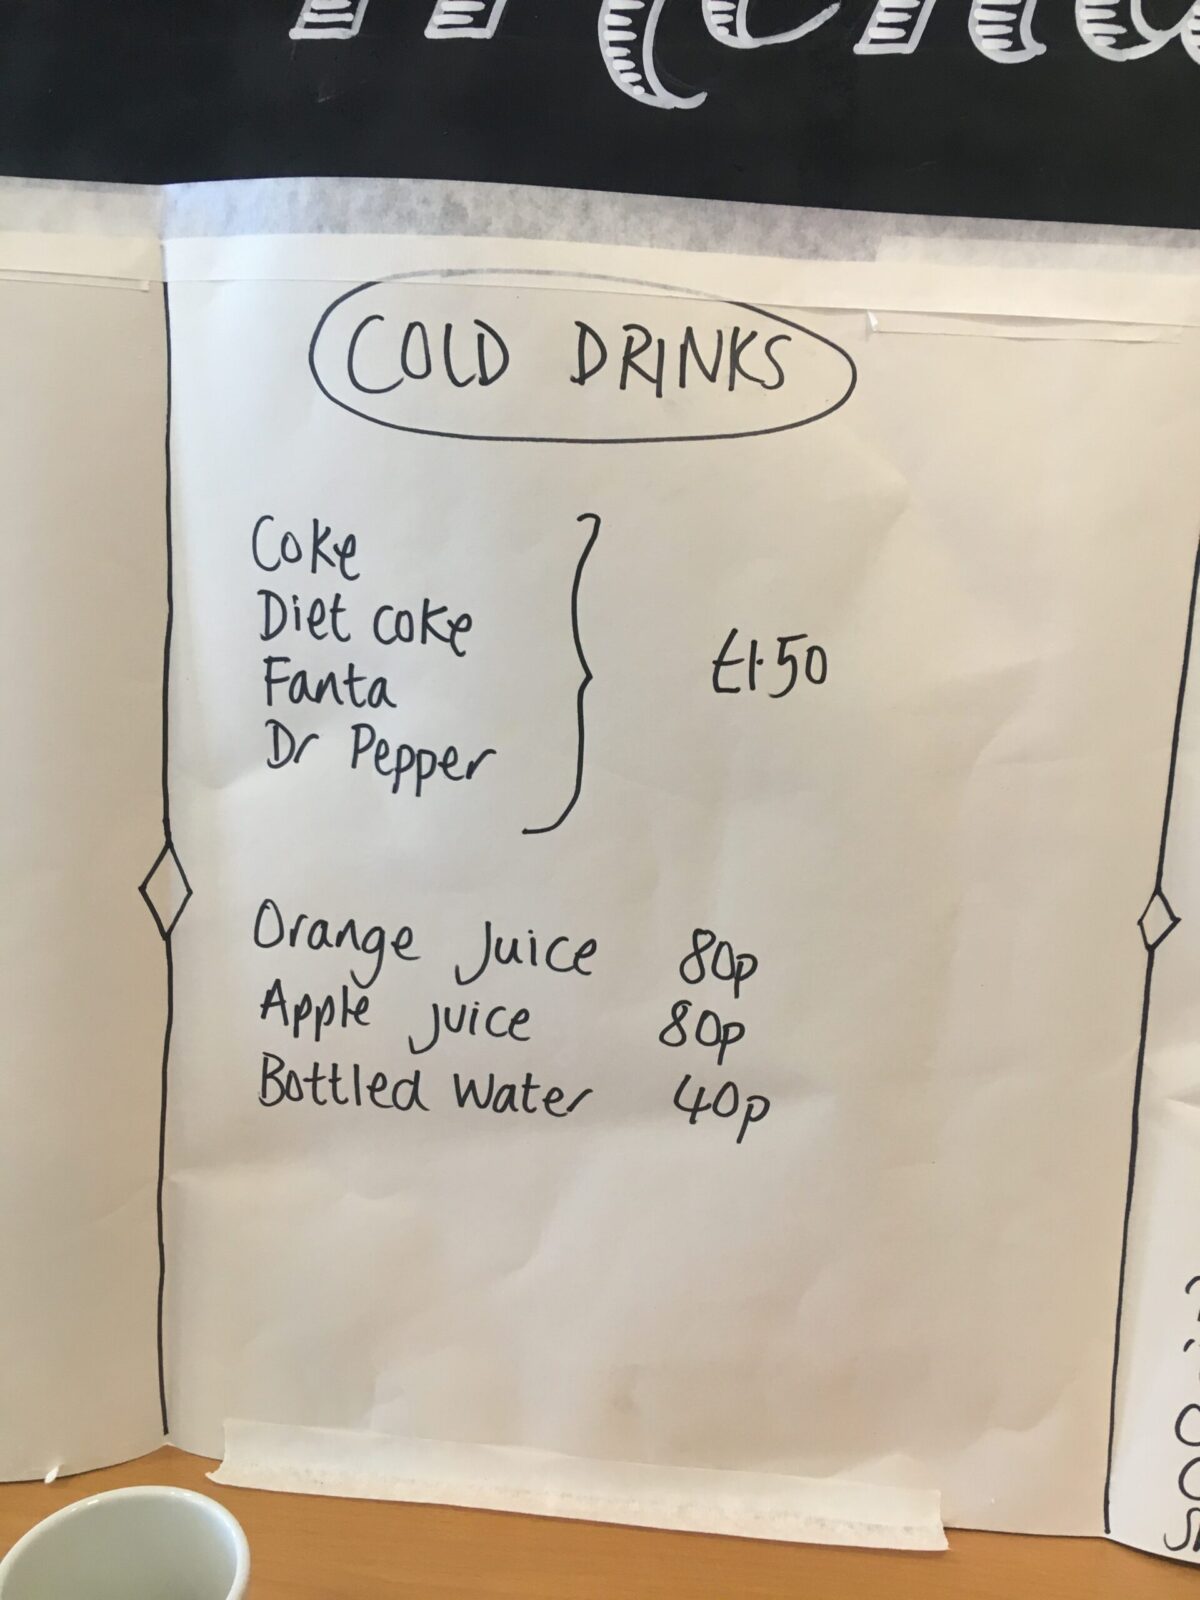 COLD DRINKS
Coke
Diet coke
Fanta
Dr Pepper
£1.50
Orange Juice 80p
Apple juice 80p
Bottled Water 40p